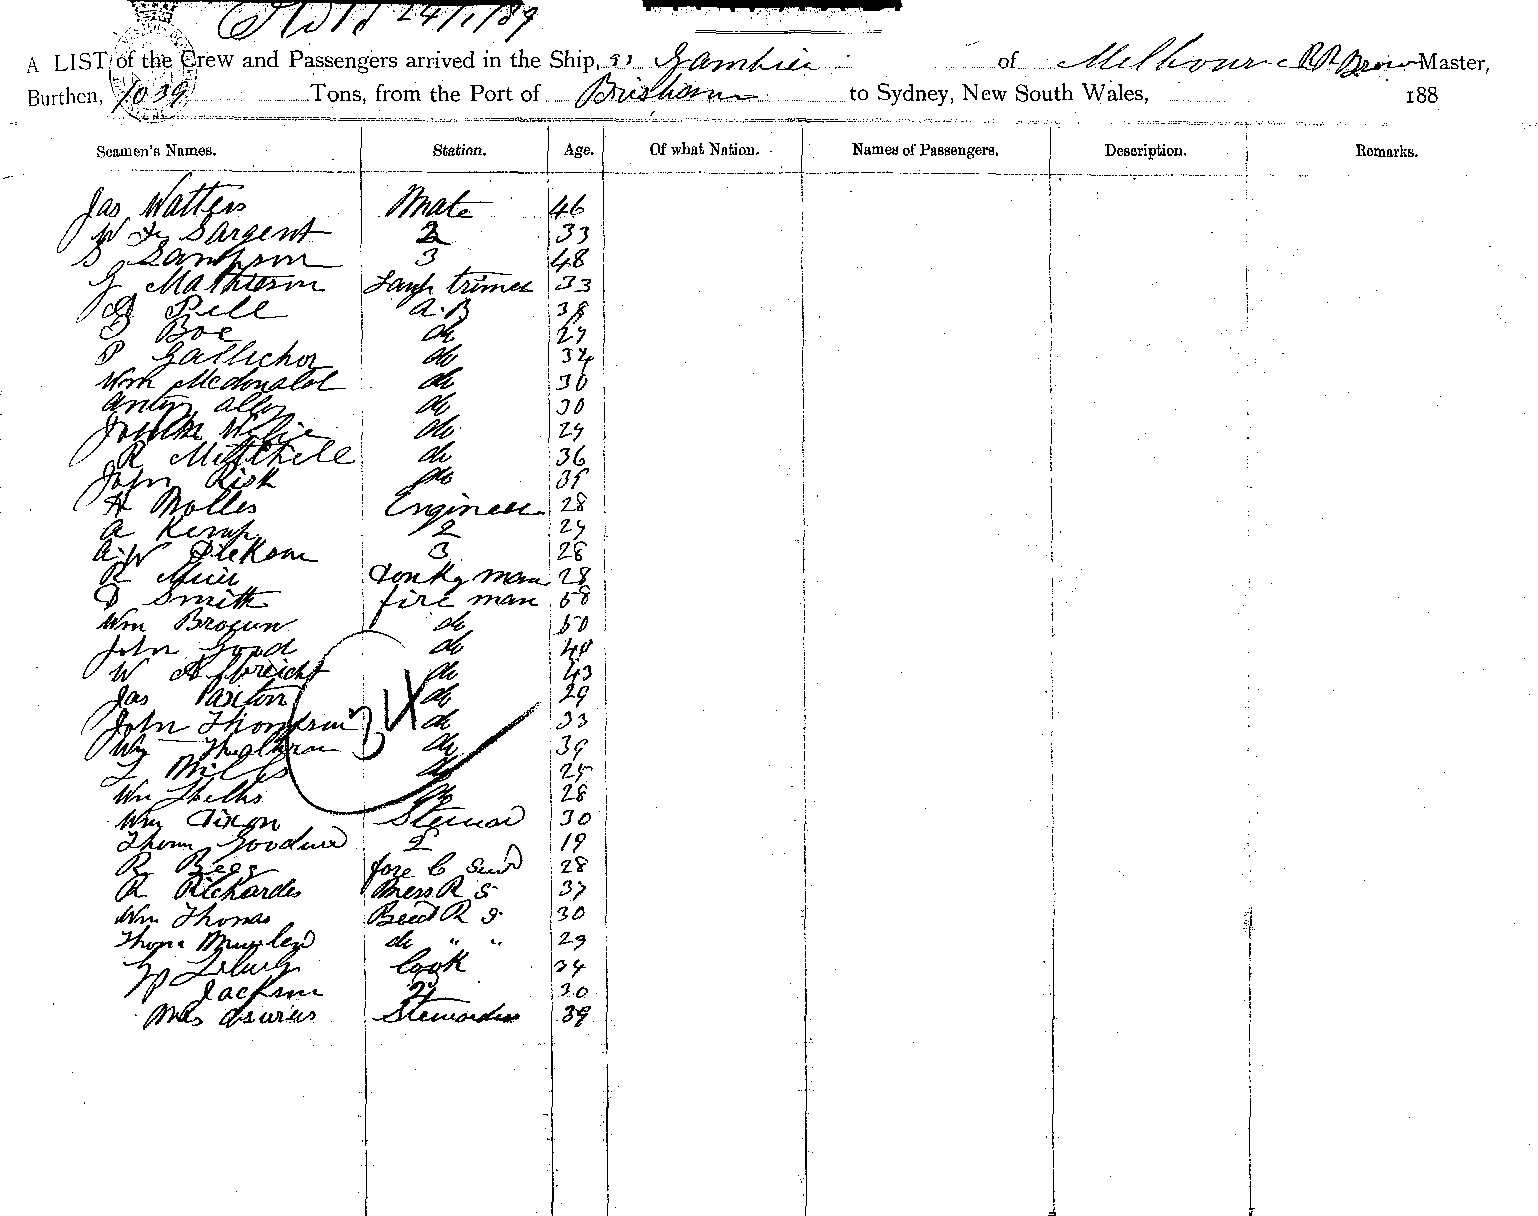 24/1/89
A LIST of the Crew and Passengers arrived in the Ship, SS Gambier of Melbourne Master,
Burthen, 1039 Tons, from the Port of Brisbane to Sydney, New South Wales, 188
Seamen's Names. Station. Age. Of what Nation. Names of Passengers. Description. Remarks.
Jas Watters Mate 46
W Sargent 2 33
S Sampson 3 48
G Mathieson Lamp trimer 33
Pell A.B 38
Boe do 27
P Gallichor do 34
Wm Mcdonald do 30
do 30
do 29
R Mitthell do 36
John Risk do 35
H Molles Engineer 28
A Kemp 2 27
A.W Dickson 3 28
R Muir donky man 28
D Smith fire man 58
Wm Brogun do 50
John Good do
W Albreicht do 43
Jas Paxton do 29
John Thompson do 33
34
Wm do 39
Mills do 25
Wm do 28
Wm Dixon Steward 30
Goodwin 2 19
R Begg fore C 28
R Richardes Mess R S 37
Wm Thomas R S 30
do " " 29
Cook 34
Jackson 2 30
Mrs Stewardess 39